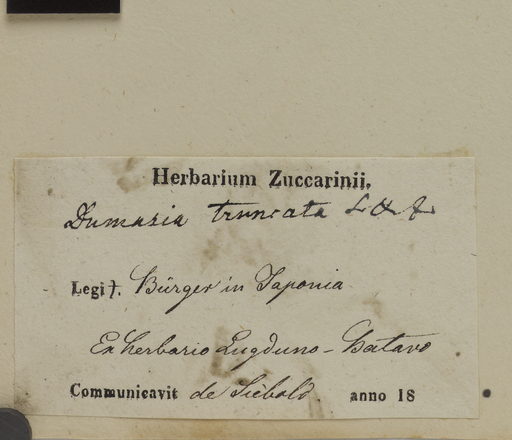 Herbarium Zuccarinii.
Dumasia truncata S & Z
Legit. Bürger in Japonia
Ex herbario Lugduno-Batavo
Communicavit de Siebold. anno 18